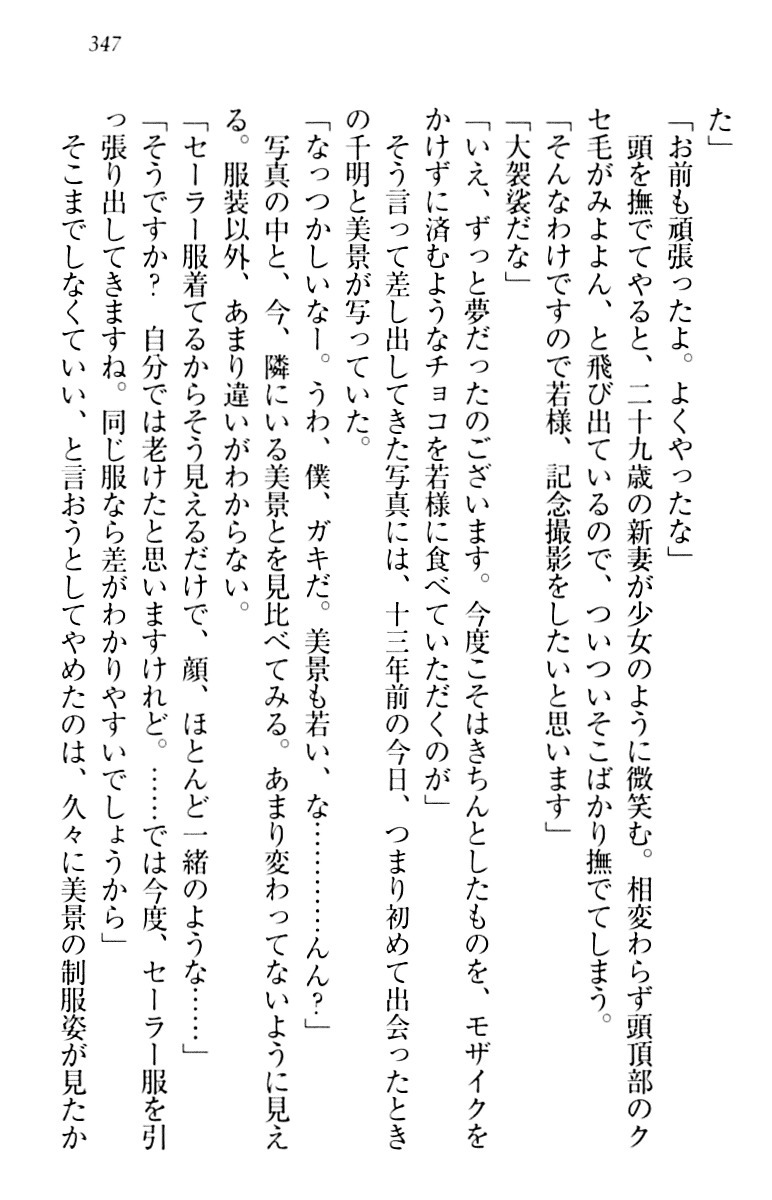 347
た」
「お前も頑張ったよ。よくやったな」
　頭を撫でてやると、二十九歳の新妻が少女のように微笑む。相変わらず頭頂部のク
セ毛がみよよん、と飛び出ているので、ついついそこばかり撫でてしまう。
「そんなわけですので若様、記念撮影をしたいと思います」
「大袈裟だな」
「いえ、ずっと夢だったのございます。今度こそはきちんとしたものを、モザイクを
かけずに済むようなチョコを若様に食べていただくのが」
　そう言って差し出してきた写真には、十三年前の今日、つまり初めて出会ったとき
の千明と美景が写っていた。
「なっつかしいなー。うわ、僕、ガキだ。美景も若い、な…………んん？」
　写真の中と、今、隣にいる美景とを見比べてみる。あまり変わってないように見え
る。服装以外、あまり違いがわからない。
「セーラー服着てるからそう見えるだけで、顔、ほとんど一緒のような……」
「そうですか？　自分では老けたと思いますけれど。……では今度、セーラー服を引
っ張り出してきますね。同じ服なら差がわかりやすいでしょうから」
　そこまでしなくていい、と言おうとしてやめたのは、久々に美景の制服姿が見たか